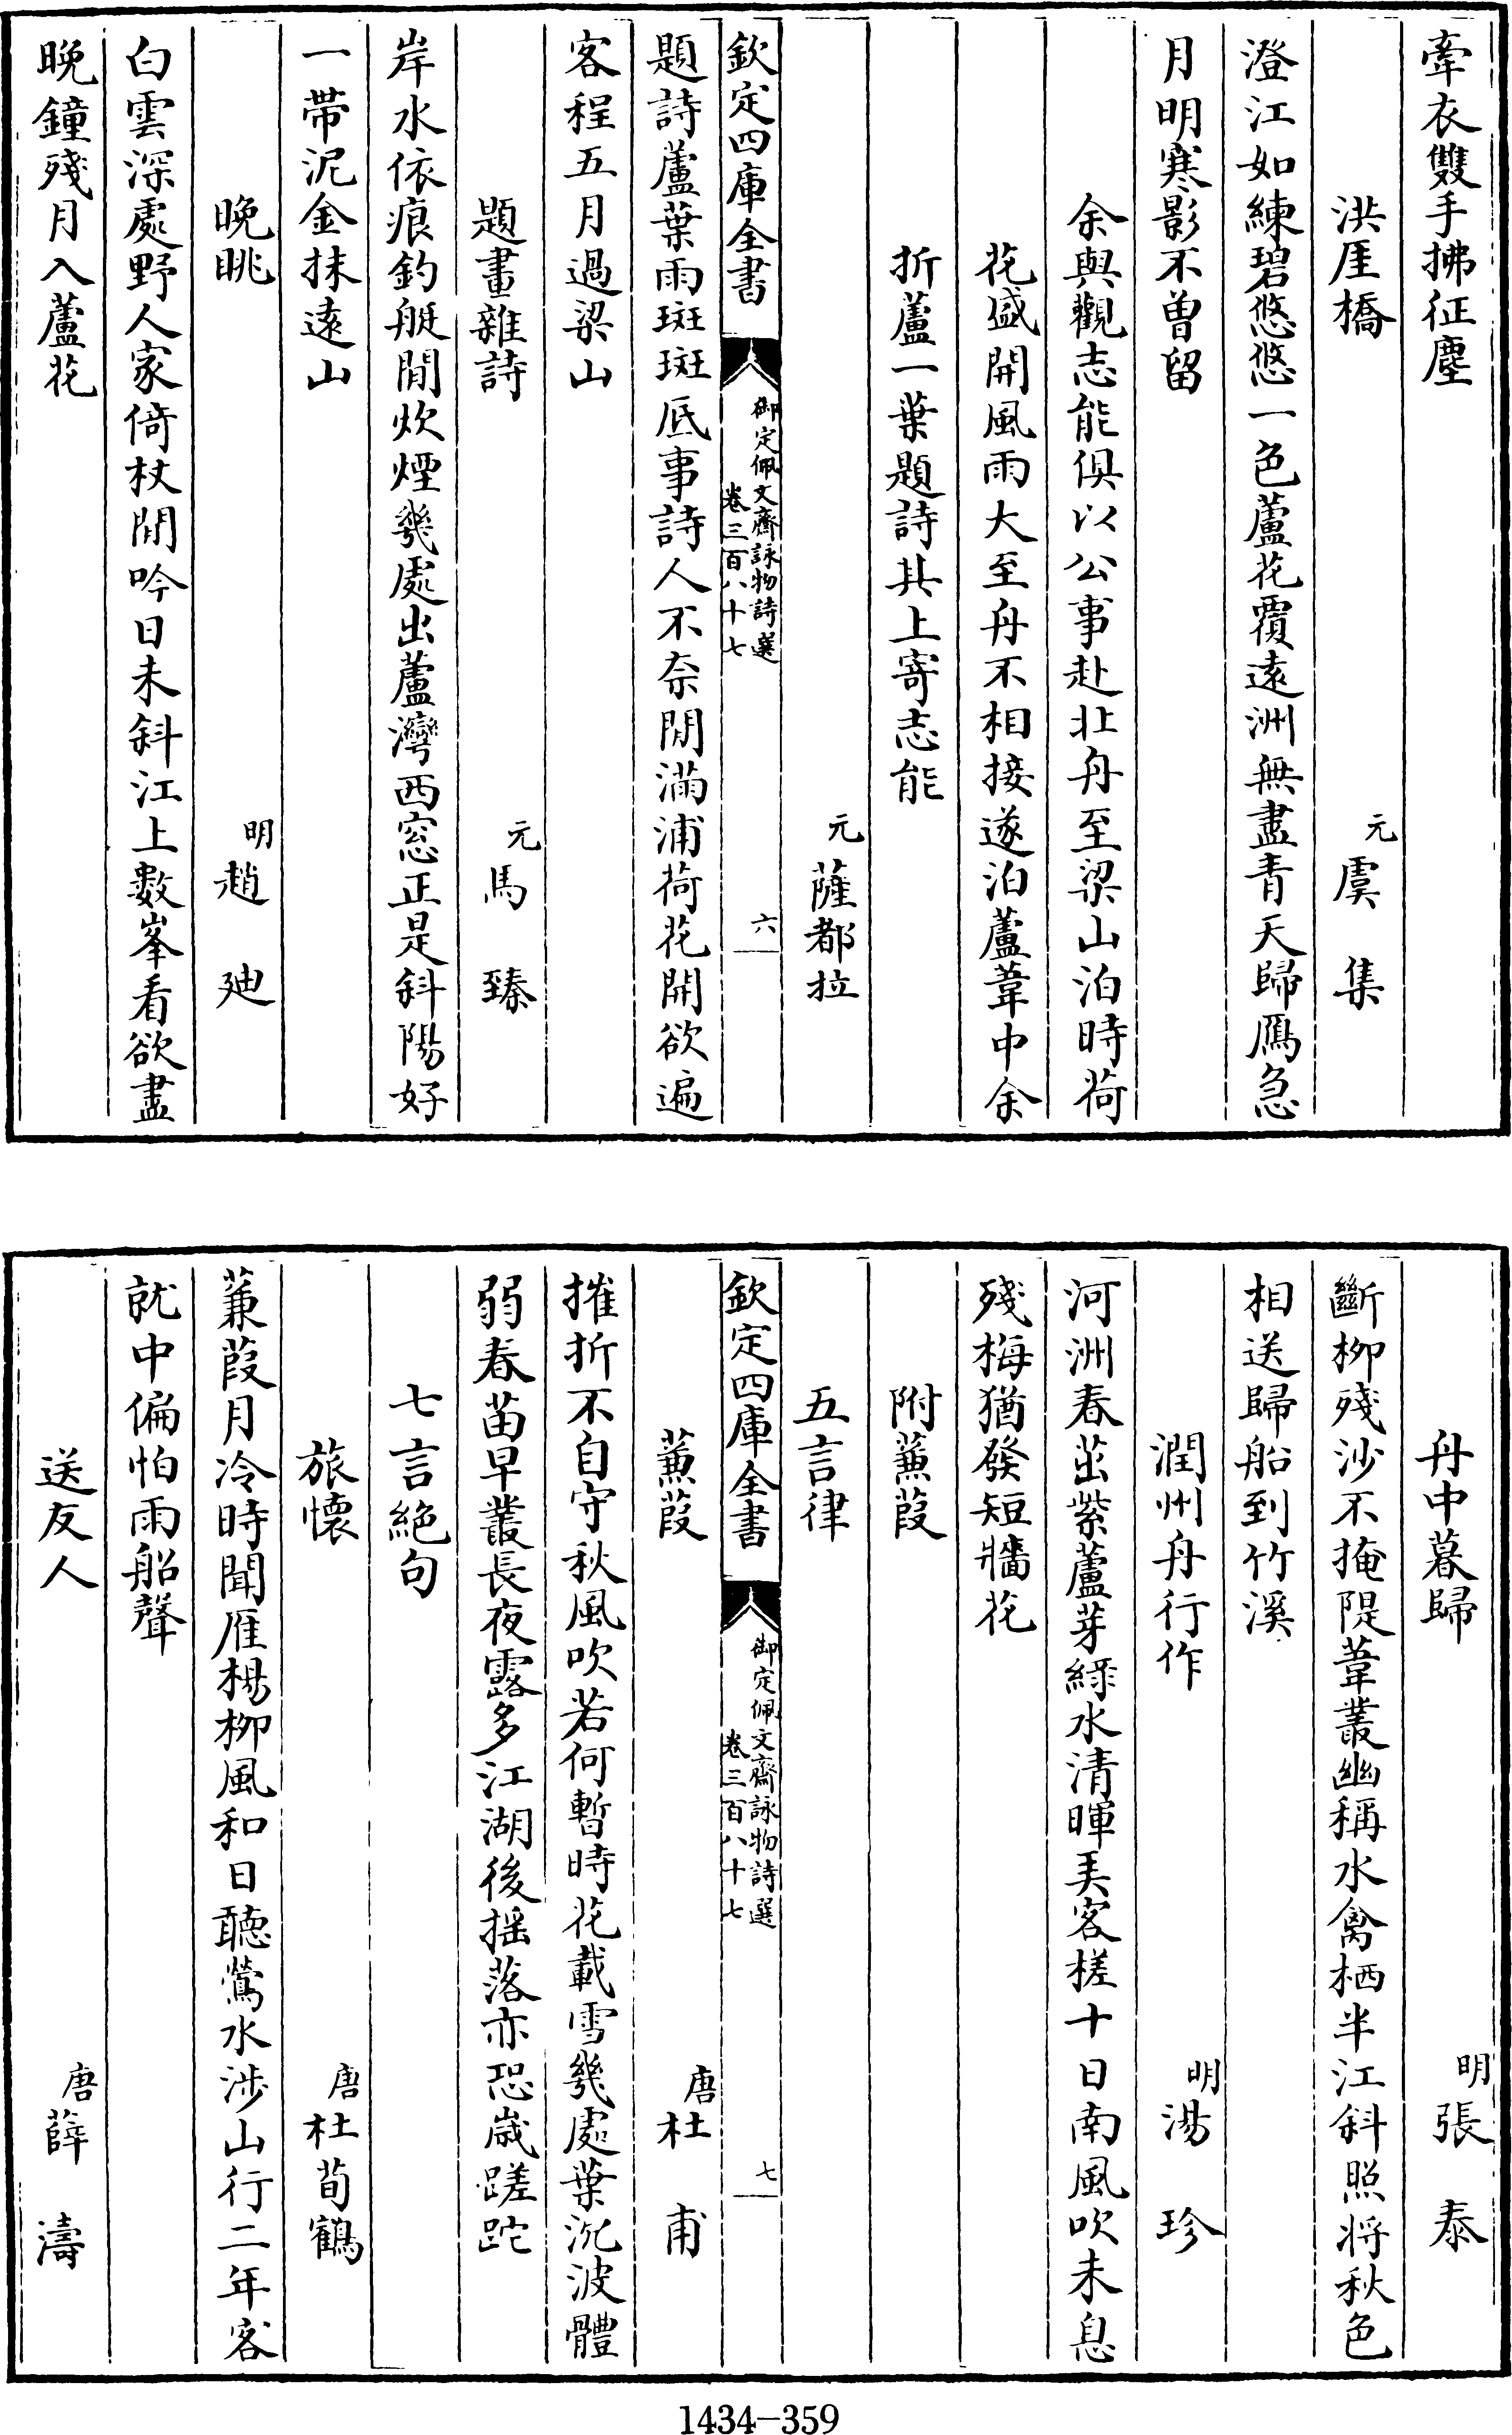 牽衣雙手拂征塵
洪厓橋
元虞集
澄江如練碧悠悠一色蘆花覆遠洲無盡青天歸鴈急
月明寒影不曾留
余與觀志能俱以公事赴北舟至梁山泊時荷
花盛開風雨大至舟不相接遂泊蘆葦中余
折蘆一葉題詩其上寄志能
元薩都拉
欽定四庫全書
御定佩文齋詠物詩選
卷三百八十七
六
題詩蘆葉雨斑斑底事詩人不奈閒滿浦荷花開欲遍
客程五月過梁山
題畫雜詩
元馬臻
岸水依痕釣艇閒炊煙幾處出蘆灣西窓正是斜陽好
一帶泥金抹遠山
晚眺
明趙迪
白雲深處野人家倚杖閒吟日未斜江上數峯看欲盡
晚鐘殘月入蘆花
舟中暮歸
明張泰
斷柳殘沙不掩隄葦叢幽稱水禽栖半江斜照將秋色
相送歸船到竹溪
潤州舟行作
明湯珍
河洲春茁紫蘆芽綠水清暉美客槎十日南風吹未息
殘梅猶發短牆花
附蒹葭
五言律
欽定四庫全書
御定佩文齋詠物詩選
卷三百八十七
七
蒹葭
唐杜甫
摧折不自守秋風吹若何暫時花載雪幾處葉沉波體
弱春苗早叢長夜露多江湖後揺落亦恐歲蹉跎
七言絕句
旅懷
唐杜荀鶴
蒹葭月冷時聞雁楊柳風和日聽鶯水涉山行二年客
就中偏怕雨船聲
送友人
唐薛濤
1434-359